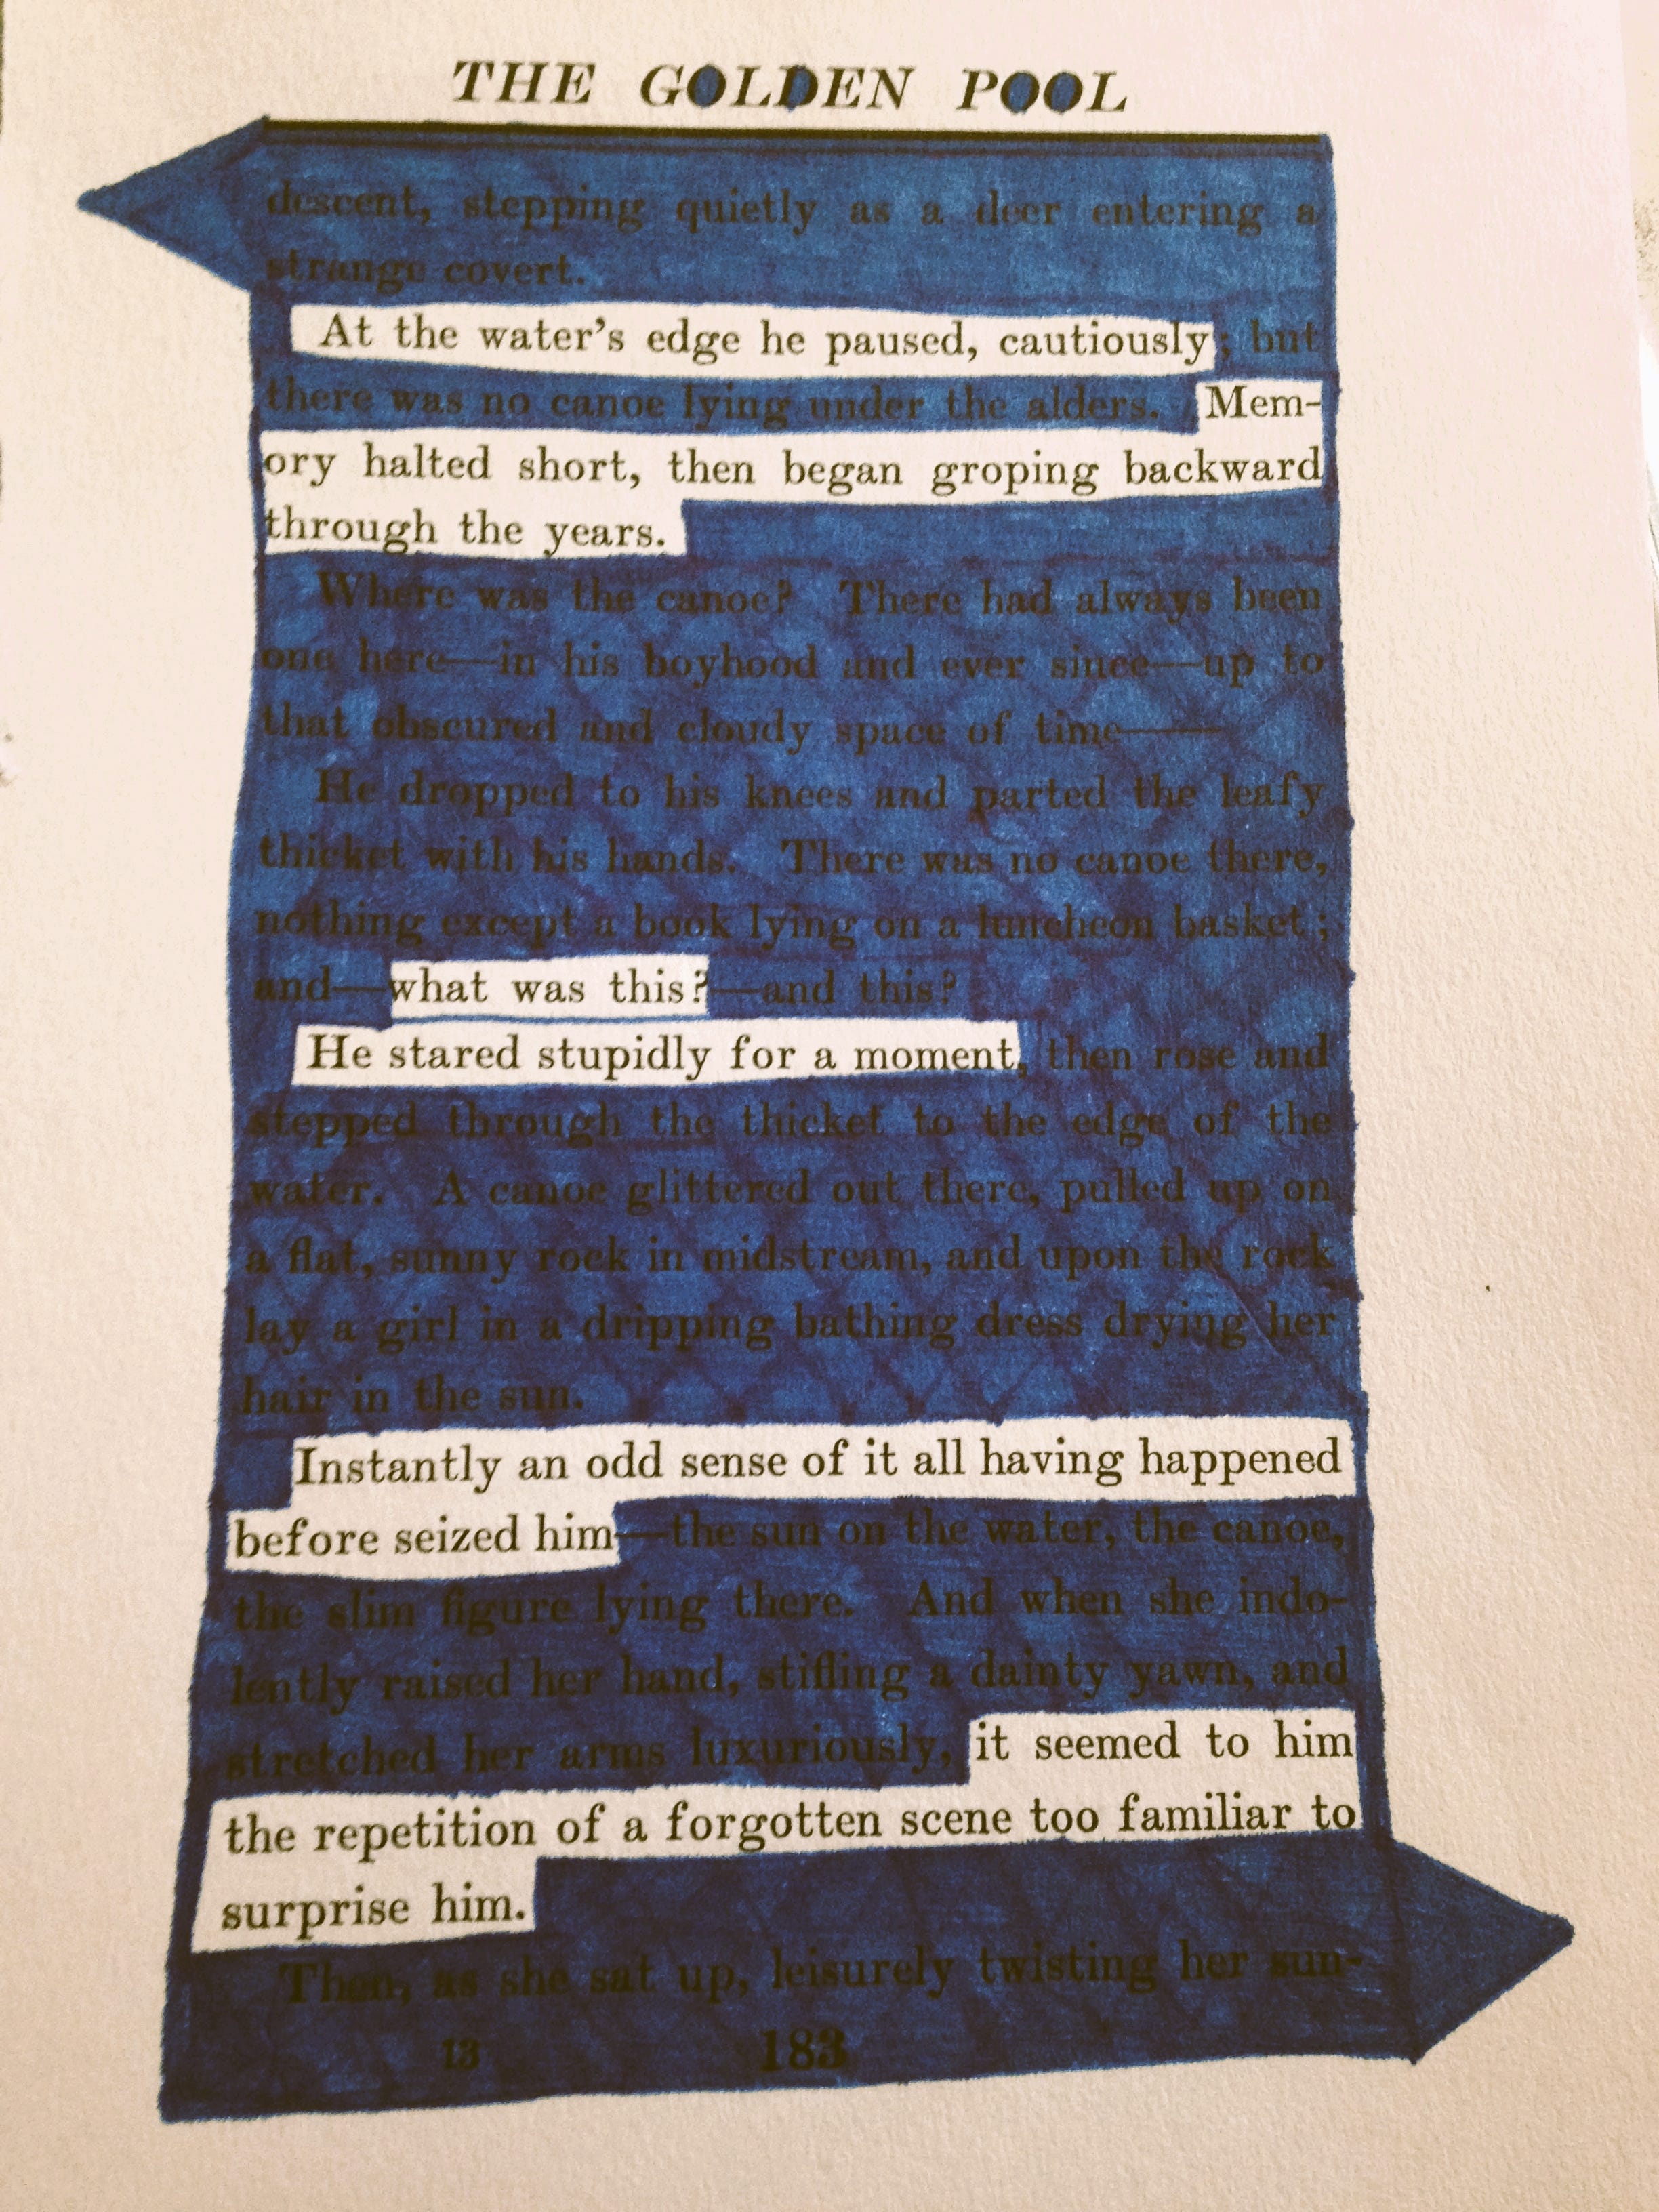 THE GOLDEN POOL
descent, stepping quietly as a deer entering a
strange covert.
At the water's edge he paused, cautiously; but
there was no canoe lying under the alders. Mem-
ory halted short, then began groping backward
through the years.
Where was the canoe? There had always been
one here—in his boyhood and ever since—up to
that obscured and cloudy space of time——
He dropped to his knees and parted the leafy
thicket with his hands. There was no canoe there,
nothing except a book lying on a luncheon basket;
and—what was this?—and this?
He stared stupidly for a moment, then rose and
stepped through the thicket to the edge of the
water. A canoe glittered out there, pulled up on
a flat, sunny rock in midstream, and upon the rock
lay a girl in a dripping bathing dress drying her
hair in the sun.
Instantly an odd sense of it all having happened
before seized him—the sun on the water, the canoe,
the slim figure lying there. And when she indo-
lently raised her hand, stifling a dainty yawn, and
stretched her arms luxuriously, it seemed to him
the repetition of a forgotten scene too familiar to
surprise him.
Then, as she sat up, leisurely twisting her sun-
13 183